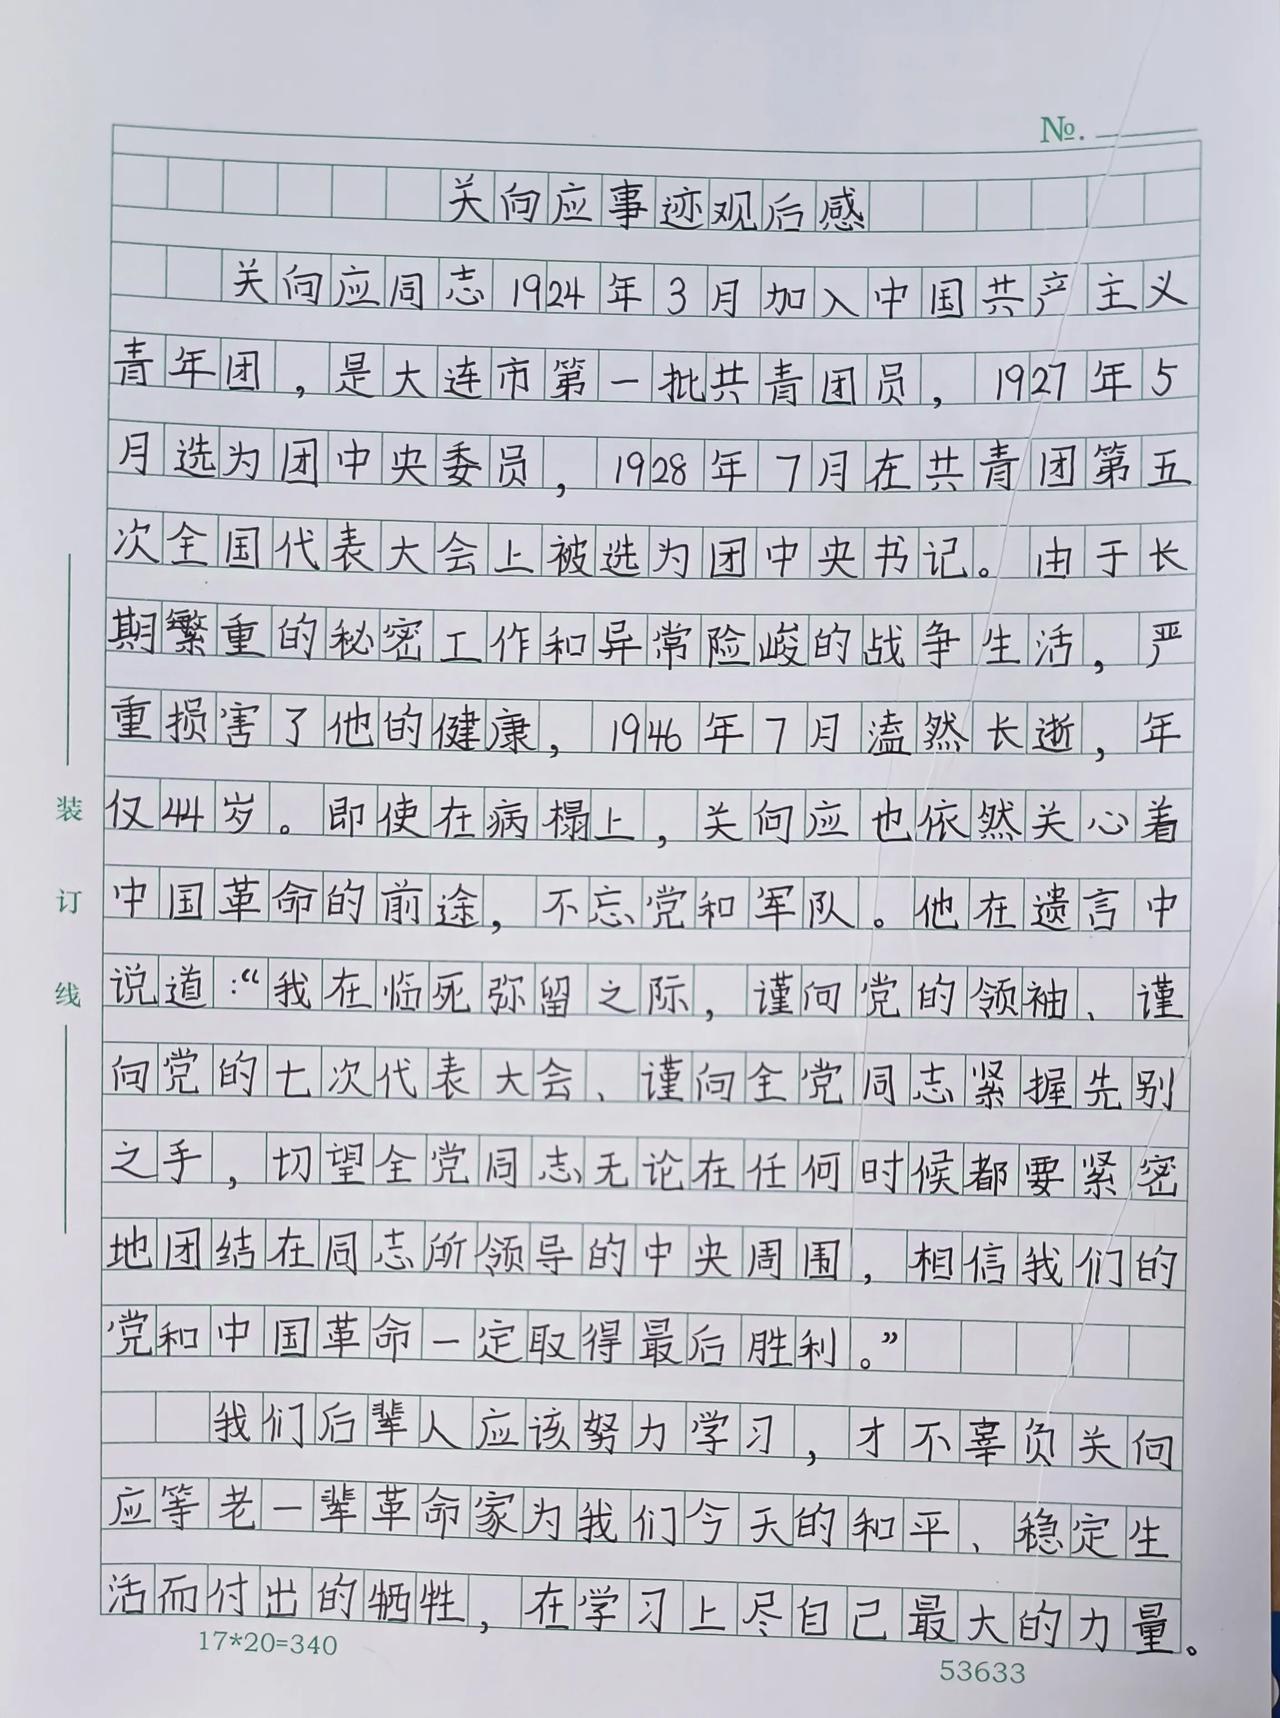 №.
关向应事迹观后感
关向应同志1924年3月加入中国共产主义
青年团，是大连市第一批共青团员，1927年5
月选为团中央委员，1928年7月在共青团第五
次全国代表大会上被选为团中央书记。由于长
期繁重的秘密工作和异常险峻的战争生活，严
重损害了他的健康，1946年7月溘然长逝，年
仅44岁。即使在病榻上，关向应也依然关心着
中国革命的前途，不忘党和军队。他在遗言中
说道：“我在临死弥留之际，谨向党的领袖、谨
向党的七次代表大会、谨向全党同志紧握先别
之手，切望全党同志无论在任何时候都要紧密
地团结在同志所领导的中央周围，相信我们的
党和中国革命一定取得最后胜利。”
我们后辈人应该努力学习，才不辜负关向
应等老一辈革命家为我们今天的和平、稳定生
活而付出的牺牲，在学习上尽自己最大的力量。
17*20=340
53633
装
订
线